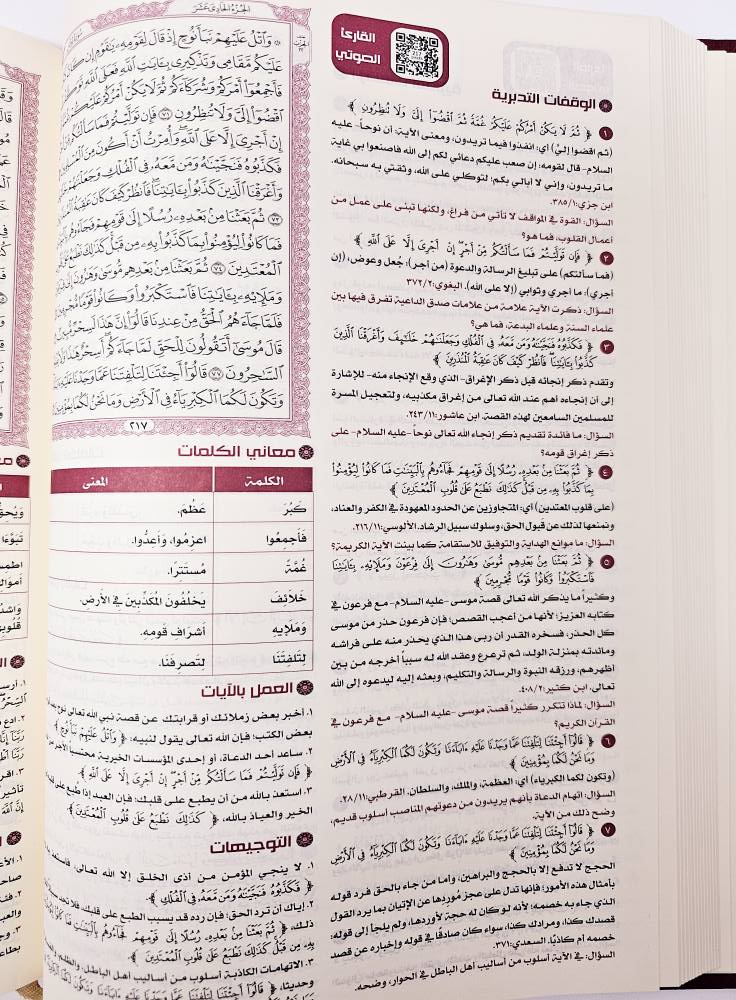 الجزء الحادي عشر
۞ وَاتْلُ عَلَيْهِمْ نَبَأَ نُوحٍ إِذْ قَالَ لِقَوْمِهِ يَٰقَوْمِ إِن كَانَ
عَلَيْكُم مَّقَامِي وَتَذْكِيرِي بِـَٔايَٰتِ اللَّهِ فَعَلَى اللَّهِ
فَأَجْمِعُوٓا۟ أَمْرَكُمْ وَشُرَكَآءَكُمْ ثُمَّ لَا يَكُنْ أَمْرُكُمْ عَلَيْكُمْ
اقْضُوٓا۟ إِلَيَّ وَلَا تُنظِرُونِ ٧١ فَإِن تَوَلَّيْتُمْ فَمَا سَأَلْتُكُم
إِنْ أَجْرِيَ إِلَّا عَلَى اللَّهِ وَأُمِرْتُ أَنْ أَكُونَ مِنَ
فَكَذَّبُوهُ فَنَجَّيْنَٰهُ وَمَن مَّعَهُ فِي الْفُلْكِ وَجَعَلْنَٰهُمْ
وَأَغْرَقْنَا الَّذِينَ كَذَّبُوا۟ بِـَٔايَٰتِنَا فَانظُرْ كَيْفَ كَانَ عَٰقِبَةُ
٧٣ ثُمَّ بَعَثْنَا مِنۢ بَعْدِهِ رُسُلًا إِلَىٰ قَوْمِهِمْ فَجَآءُوهُم
فَمَا كَانُوا۟ لِيُؤْمِنُوا۟ بِمَا كَذَّبُوا۟ بِهِ مِن قَبْلُ كَذَٰلِكَ نَطْبَعُ
الْمُعْتَدِينَ ٧٤ ثُمَّ بَعَثْنَا مِنۢ بَعْدِهِم مُّوسَىٰ وَهَٰرُونَ
وَمَلَإِيهِ بِـَٔايَٰتِنَا فَاسْتَكْبَرُوا۟ وَكَانُوا۟ قَوْمًا
فَلَمَّا جَآءَهُمُ الْحَقُّ مِنْ عِندِنَا قَالُوٓا۟ إِنَّ هَٰذَا لَسِحْرٌ
قَالَ مُوسَىٰٓ أَتَقُولُونَ لِلْحَقِّ لَمَّا جَآءَكُمْ أَسِحْرٌ هَٰذَا
السَّٰحِرُونَ ٧٧ قَالُوٓا۟ أَجِئْتَنَا لِتَلْفِتَنَا عَمَّا وَجَدْنَا عَلَيْهِ
وَتَكُونَ لَكُمَا الْكِبْرِيَآءُ فِي الْأَرْضِ وَمَا نَحْنُ لَكُمَا
٢١٧
معاني الكلمات
الكلمة المعنى
كَبُرَ عَظُمَ.
فَأَجْمِعُوا اعزِمُوا، وَأَعدُّوا.
غُمَّةً مُستَتَرًا.
خَلَائِفَ يَخلُفُونَ المُكَذِّبِينَ فِي الأَرضِ.
وَمَلَإِيهِ أَشرَافِ قَومِهِ.
لِتَلْفِتَنَا لِتَصرِفَنَا.
العمل بالآيات
١. أخبر بعض زملائك أو قرابتك عن قصة نبي الله تعالى نوح
بعض الكتب؛ فإن الله تعالى يقول لنبيه: ﴿ وَاتْلُ عَلَيْهِمْ نَبَأَ نُوحٍ ﴾
٢. ساعد أحد الدعاة، أو إحدى المؤسسات الخيرية محتسباً الأجر من
﴿ فَإِن تَوَلَّيْتُمْ فَمَا سَأَلْتُكُم مِّنْ أَجْرٍ إِنْ أَجْرِيَ إِلَّا عَلَى اللَّهِ ﴾
٣. استعذ بالله من أن يطبع على قلبك؛ فإن العبد إذا طبع على
الخير والعياذ بالله، ﴿ كَذَٰلِكَ نَطْبَعُ عَلَىٰ قُلُوبِ الْمُعْتَدِينَ ﴾
التوجيهات
١. لا ينجي المؤمن من أذى الخلق إلا الله تعالى، فاستعذ
﴿ فَكَذَّبُوهُ فَنَجَّيْنَٰهُ وَمَن مَّعَهُ فِي الْفُلْكِ ﴾
٢. إياك أن ترد الحق؛ فإن رده قد يسبب الطبع على قلبك، فلا
ذلك، ﴿ ثُمَّ بَعَثْنَا مِنۢ بَعْدِهِ رُسُلًا إِلَىٰ قَوْمِهِمْ فَجَآءُوهُم بِالْبَيِّنَٰتِ فَمَا كَانُوا۟
بِهِ مِن قَبْلُ كَذَٰلِكَ نَطْبَعُ عَلَىٰ قُلُوبِ الْمُعْتَدِينَ ﴾
٣. الاتهامات الكاذبة أسلوب من أساليب أهل الباطل، والظلم
وحديثا، ﴿ قَالُوٓا۟ أَجِئْتَنَا لِتَلْفِتَنَا عَمَّا وَجَدْنَا عَلَيْهِ ءَابَآءَنَا وَتَكُونَ لَكُمَا
القارئ
الصوتي
الوقفات التدبرية
١ ﴿ ثُمَّ لَا يَكُنْ أَمْرُكُمْ عَلَيْكُمْ غُمَّةً ثُمَّ اقْضُوٓا۟ إِلَيَّ وَلَا تُنظِرُونِ ﴾
(ثم اقضوا إلي) أي: انفذوا فيما تريدون، ومعنى الآية: أن نوحاً -عليه
السلام- قال لقومه: إن صعب عليكم دعائي لكم إلى الله فاصنعوا بي غاية
ما تريدون، وإني لا أبالي بكم؛ لتوكلي على الله، وثقتي به سبحانه.
ابن جزي:١/٣٨٥.
السؤال: القوة في المواقف لا تأتي من فراغ، ولكنها تبنى على عمل من
أعمال القلوب، فما هو؟
٢ ﴿ فَإِن تَوَلَّيْتُمْ فَمَا سَأَلْتُكُم مِّنْ أَجْرٍ إِنْ أَجْرِيَ إِلَّا عَلَى اللَّهِ ﴾
(فما سألتكم) على تبليغ الرسالة والدعوة (من أجر): جُعل وعوض، (إن
أجري): ما أجري وثوابي (إلا على الله). البغوي:٢/٣٧٢.
السؤال: ذكرت الآية علامة من علامات صدق الداعية تفرق فيها بين
علماء السنة وعلماء البدعة، فما هي؟
٣ ﴿ فَكَذَّبُوهُ فَنَجَّيْنَٰهُ وَمَن مَّعَهُ فِي الْفُلْكِ وَجَعَلْنَٰهُمْ خَلَٰٓئِفَ وَأَغْرَقْنَا الَّذِينَ
كَذَّبُوا۟ بِـَٔايَٰتِنَا فَانظُرْ كَيْفَ كَانَ عَٰقِبَةُ الْمُنذَرِينَ ﴾
وتقدم ذكر إنجائه قبل ذكر الإغراق -الذي وقع الإنجاء منه- للإشارة
إلى أن إنجاءه أهم عند الله تعالى من إغراق مكذبيه، ولتعجيل المسرة
للمسلمين السامعين لهذه القصة. ابن عاشور:١١/٢٤٣.
السؤال: ما فائدة تقديم ذكر إنجاء الله تعالى نوحاً -عليه السلام- على
ذكر إغراق قومه؟
٤ ﴿ ثُمَّ بَعَثْنَا مِنۢ بَعْدِهِ رُسُلًا إِلَىٰ قَوْمِهِمْ فَجَآءُوهُم بِالْبَيِّنَٰتِ فَمَا كَانُوا۟ لِيُؤْمِنُوا۟
بِمَا كَذَّبُوا۟ بِهِ مِن قَبْلُ كَذَٰلِكَ نَطْبَعُ عَلَىٰ قُلُوبِ الْمُعْتَدِينَ ﴾
(على قلوب المعتدين) أي: المتجاوزين عن الحدود المعهودة في الكفر والعناد،
ونمنعها لذلك عن قبول الحق، وسلوك سبيل الرشاد. الألوسي:١١/٢١٦.
السؤال: ما موانع الهداية والتوفيق للاستقامة كما بينت الآية الكريمة؟
٥ ﴿ ثُمَّ بَعَثْنَا مِنۢ بَعْدِهِم مُّوسَىٰ وَهَٰرُونَ إِلَىٰ فِرْعَوْنَ وَمَلَإِيهِ بِـَٔايَٰتِنَا
فَاسْتَكْبَرُوا۟ وَكَانُوا۟ قَوْمًا مُّجْرِمِينَ ﴾
وكثيراً ما يذكر الله تعالى قصة موسى -عليه السلام- مع فرعون في
كتابه العزيز؛ لأنها من أعجب القصص؛ فإن فرعون حذر من موسى
كل الحذر، فسخره القدر أن ربى هذا الذي يحذر منه على فراشه
ومائدته بمنزلة الولد، ثم ترعرع وعقد الله له سبباً أخرجه من بين
أظهرهم، ورزقه النبوة والرسالة والتكليم، وبعثه إليه ليدعوه إلى الله
تعالى. ابن كثير:٢/٤٠٨.
السؤال: لماذا تتكرر كثيراً قصة موسى -عليه السلام- مع فرعون في
القرآن الكريم؟
٦ ﴿ قَالُوٓا۟ أَجِئْتَنَا لِتَلْفِتَنَا عَمَّا وَجَدْنَا عَلَيْهِ ءَابَآءَنَا وَتَكُونَ لَكُمَا الْكِبْرِيَآءُ فِي الْأَرْضِ
وَمَا نَحْنُ لَكُمَا بِمُؤْمِنِينَ ﴾
(وتكون لكما الكبرياء) أي: العظمة، والملك، والسلطان. القرطبي:١١/٢٨.
السؤال: اتهام الدعاة بأنهم يريدون من دعوتهم المناصب أسلوب قديم،
وضح ذلك من الآية.
٧ ﴿ قَالُوٓا۟ أَجِئْتَنَا لِتَلْفِتَنَا عَمَّا وَجَدْنَا عَلَيْهِ ءَابَآءَنَا وَتَكُونَ لَكُمَا الْكِبْرِيَآءُ فِي الْأَرْضِ
وَمَا نَحْنُ لَكُمَا بِمُؤْمِنِينَ ﴾
الحجج لا تدفع إلا بالحجج والبراهين، وأما من جاء بالحق فرد قوله
بأمثال هذه الأمور؛ فإنها تدل على عجز مُوردها عن الإتيان بما يرد القول
الذي جاء به خصمه؛ لأنه لو كان له حجة لأوردها، ولم يلجأ إلى قوله:
قصدك كذا، ومرادك كذا، سواء كان صادقًا في قوله وإخباره عن قصد
خصمه أم كاذبًا. السعدي:٣٧١.
السؤال: في الآية أسلوب من أساليب أهل الباطل في الحوار، وضحه.